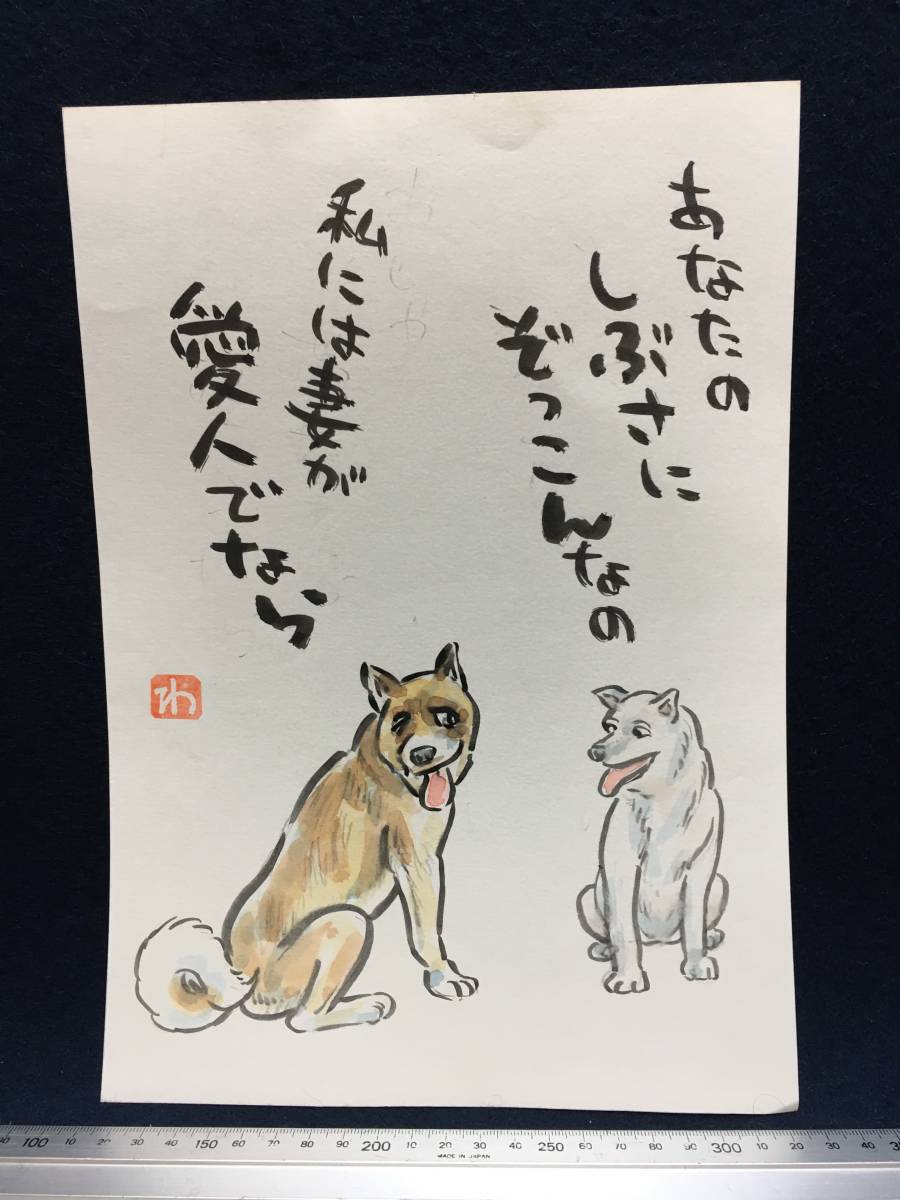 あなたの
しぶさに
ぞっこんなの
私には妻が
愛人でなら
わ
90 100 10 20 30 40 150 60 70 80 90 200 10 20 30 40 250 60 70 80 90 300 10 20 30 40
MADE IN JAPAN